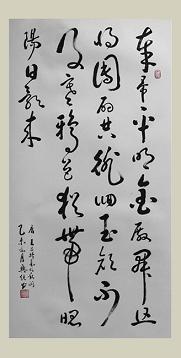 奉帚平明金殿開且
將團扇共徘徊玉顏不
及寒鴉色猶帶昭
陽日影來
唐王昌齡長信秋詞
乙未